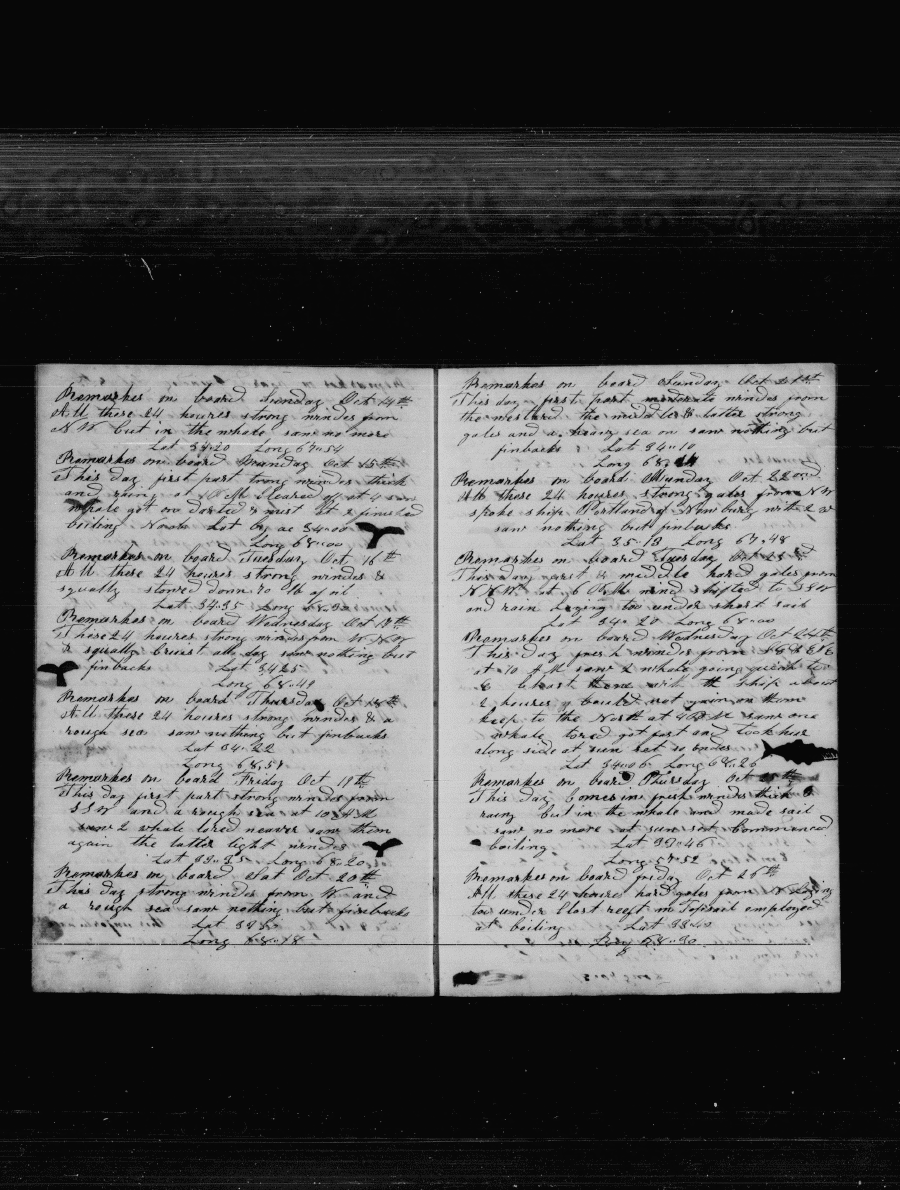 Remarkes on board Sunday Oct 14th
All these 24 houres strong windes from
N W but in the whole saw no more
Lat 34-20 Long 67-54
Remarkes on board Munday Oct 15th
This day first part trong windes thick
and rainy at P M Cleared of at 4 saw
whale got on darted & mist at 2 finished
boiling Noon Lat by ac 34-00
Long 68-00
Remarkes on board Tuesday Oct 16th
All these 24 houres strong windes &
squally stowed down 70 lb of oil
Lat 34-35 Long
Remarkes on board Wednesday Oct 17th
These 24 houres strong windes from W N W
& squally cruist all day saw nothing but
finbacks Lat 34-25
Long 68-49
Remarkes on board Thursday Oct 18th
All these 24 houres strong windes & a
rough sea saw nothing but finbacks
Lat 34-22
Long 68-51
Remarkes on board Friday Oct 19th
This day first part strong windes from
S S W and a rough sea at 10 A M
saw 2 whale lored neaver saw them
again the latter light windes
Lat Long 68-20
Remarkes on board Sat Oct 20th
This day strong windes from W and
a rough sea saw nothing but finbacks
Lat
Long 68-18
Remarkes on board Sunday Oct 21st
This day first part moderate windes from
the westurd the middle & latter strong
gales and a heavy sea on saw nothing but
finbacks Lat 34-10
Long 68
Remarkes on board Munday Oct 22nd
All these 24 houres strong gales from N W
spoke ship Portland of Newburg with 2 w
saw nothing but finbacks
Lat 35-13 Long 67-48
Remarkes on board Tuesday Oct 23d
This day first & middle hard gales from
N N W at 6 P M wind shifted to S S W
and rain Laying too under short sail
Lat 34-20 Long 68-00
Remarkes on board Wednesday Oct 24th
This day fresh windes from
at 10 A M saw 2 whale going quick to
E chast them with the ship about
2 houres could not gain on them
keep to the North at 4 P M saw one
whale lored got fast and took hur
along side at sun set so endes
Lat 34-06 Long 68-26
Remarkes on board Thursday Oct 25th
This day comes in fresh windes thick &
rainy but in the whale and made sail
saw no more at sun set Commenced
boiling Lat 33-46
Long 67-52
Remarkes on board Friday Oct 26th
All these 24 houres hard gales from Laying
too under Clost reeft m Topsail employed
at boiling Lat 33-40
Long 68-30